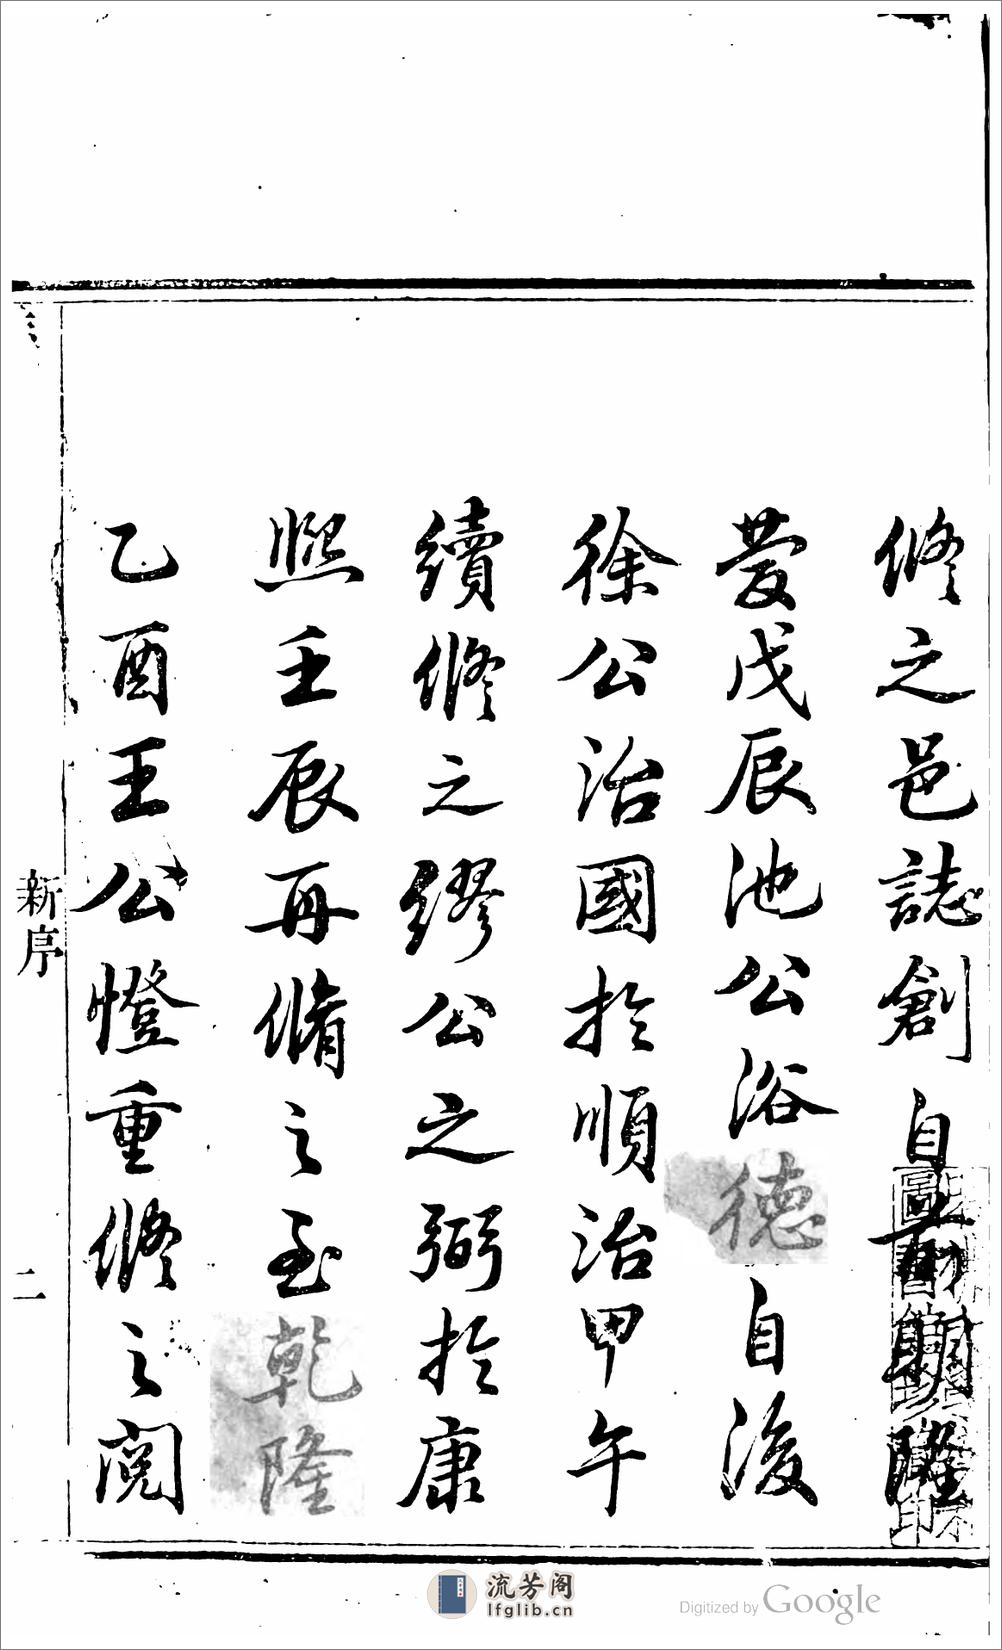 修之邑誌創自隆
慶戊辰池公浴德自後
徐公治國於順治甲午
續修之繆公之弼於康
熙壬辰再脩之至乾隆
乙酉王公憕重修之閱
新序
二
流芳阁
lfglib.cn
Digitized by Google